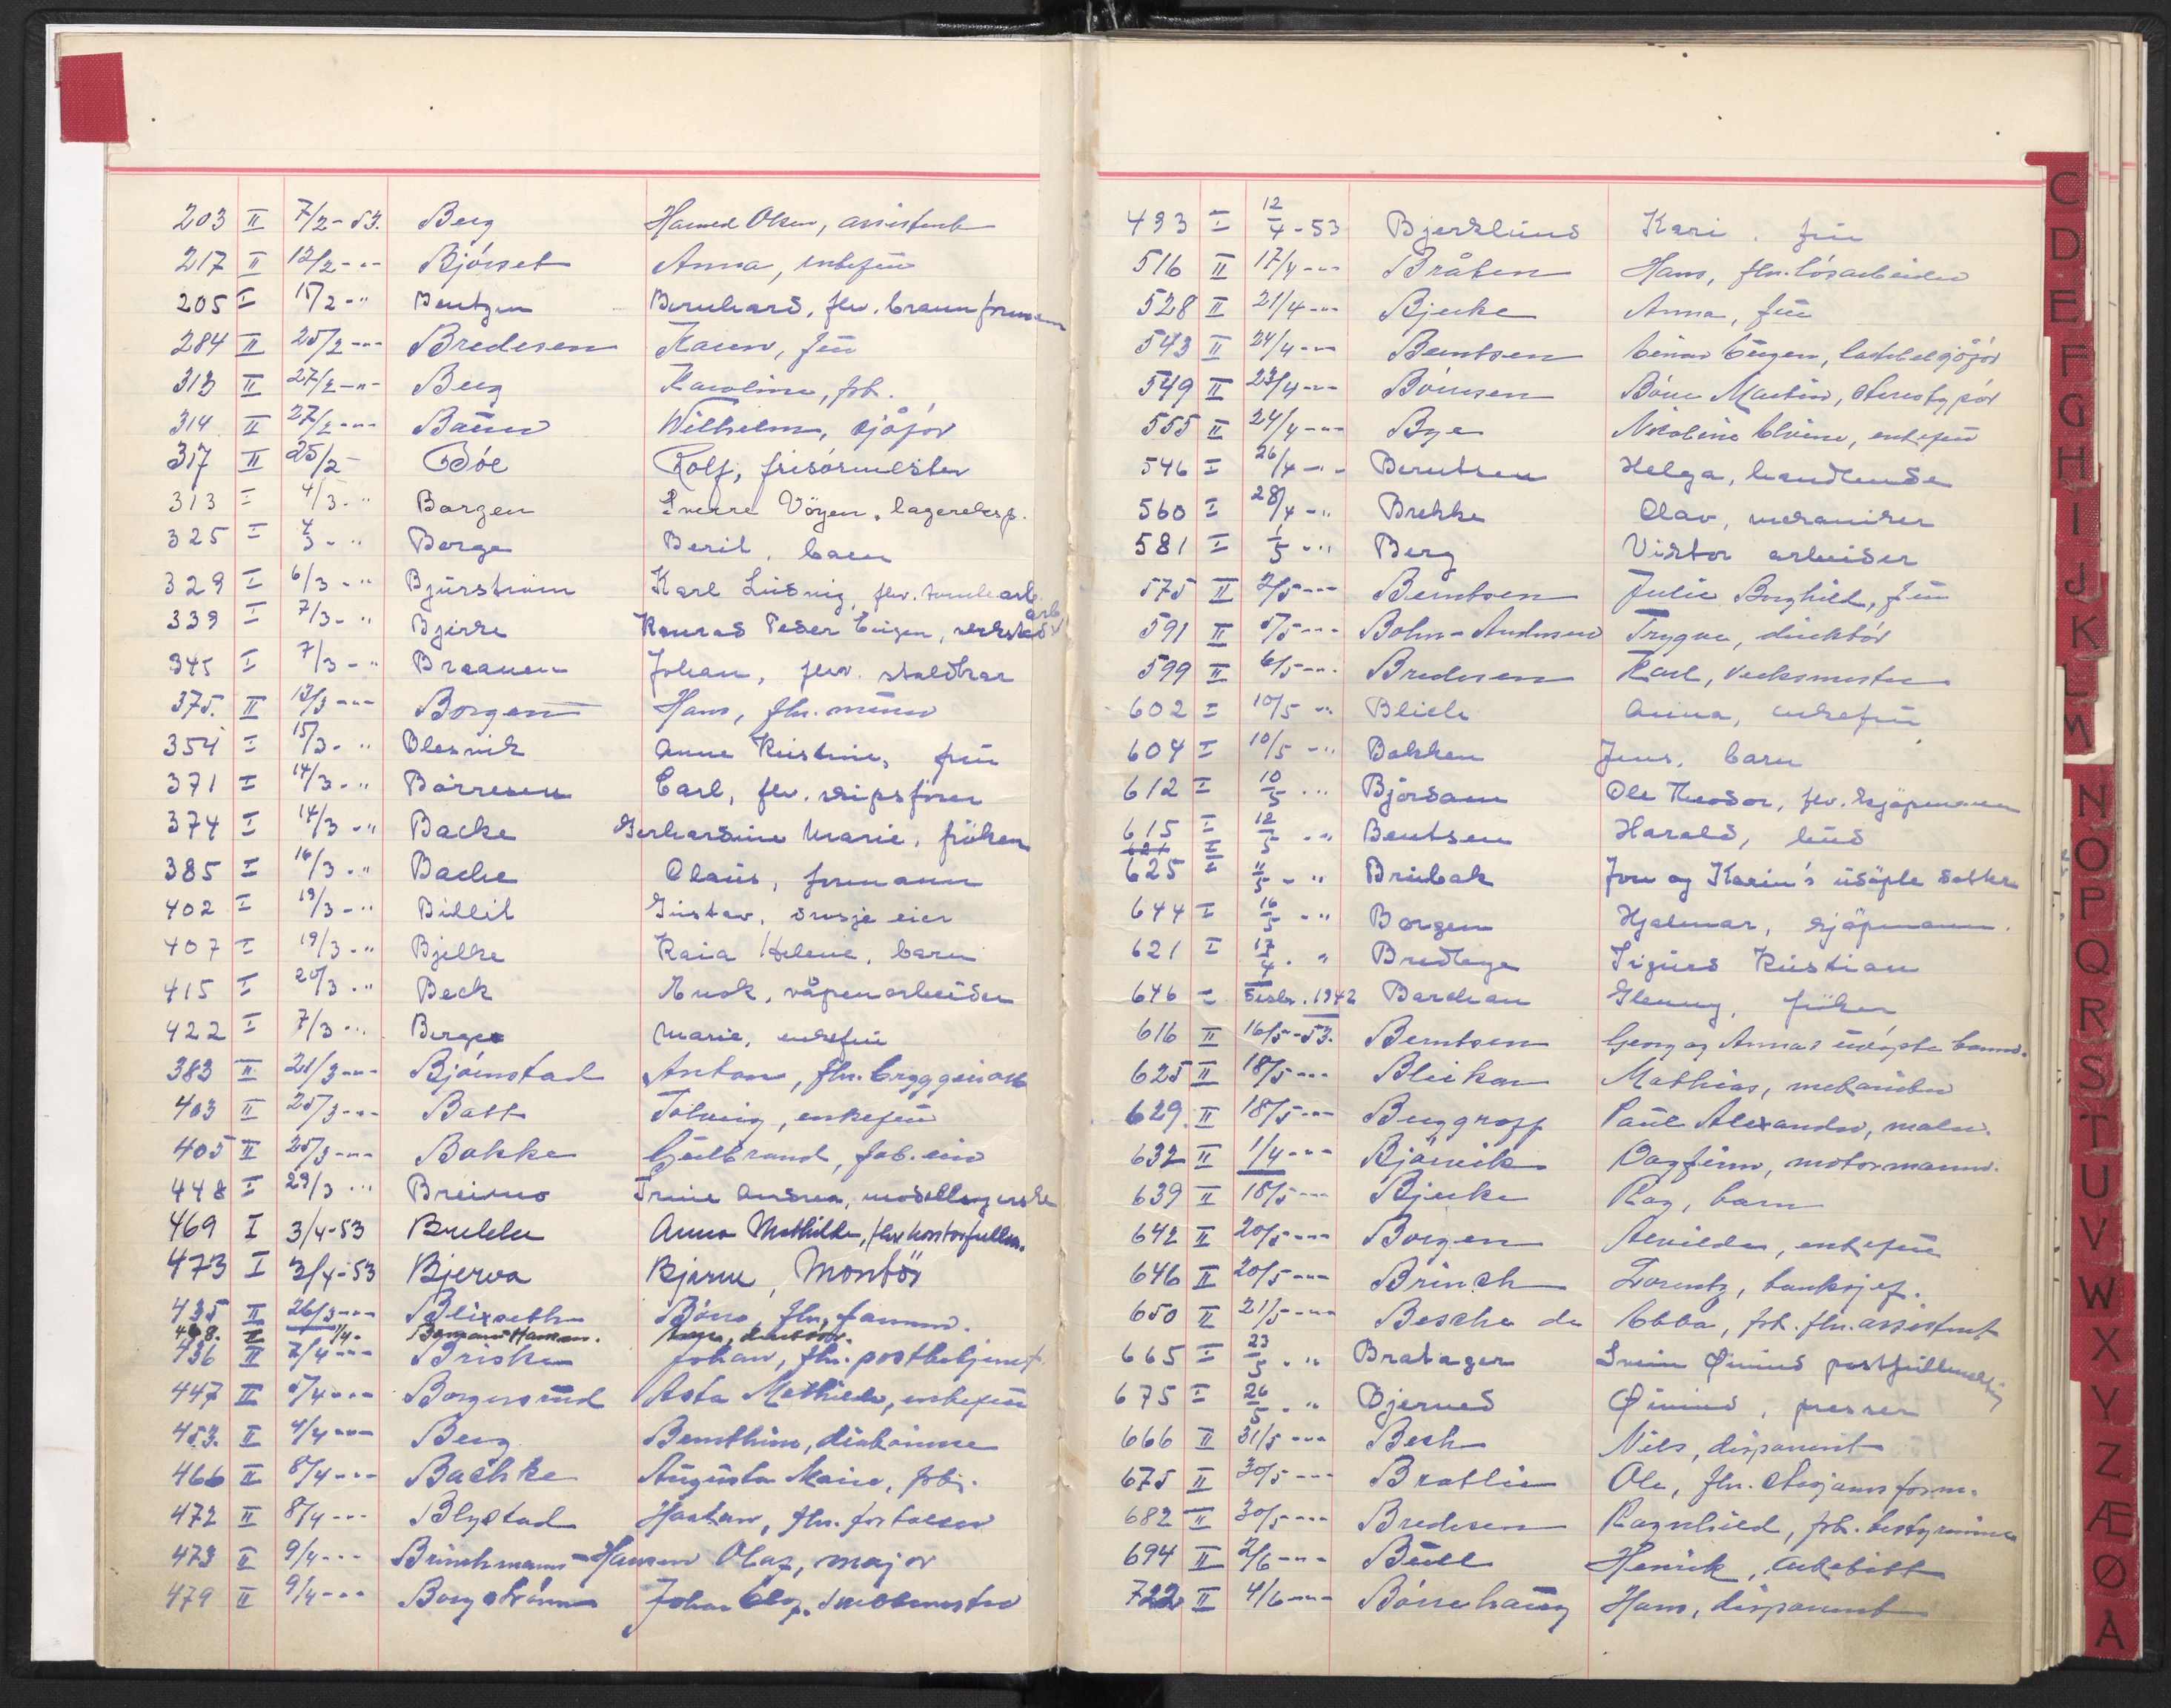 203 II 7/2-53. Berg Harald Olsen, assistent
217 II 12/2 - „ - Bjørset Anna, enkefrú
205 I 15/2 - „ Bentzen Bernhard, flv. formann
284 II 25/2 - „ - Bredesen Karen, frú
313 II 27/2 - „ - Berg Karoline, frk.
314 II 27/2 - „ - Baúer Wilhelm, sjåfør
317 II 25/2 - Bøe Rolf, frisørmester
313 I 4/3 - „ Borgen Sverre Vøyen, lagereksp.
325 I 2/3 - „ Borge Berit, barn
329 I 6/3 - „ Bjúrstrøm Karl Lúdvig, flv. tomtearb.
339 I 7/3 - „ Bjerke Konrad Peder Eúgen, verkstedarb.
345 I 7/3 - „ Braanen Johan, flv. staldkar
375. II 13/3 - „ - Borgen Hans, fhv. múrer
354 I 15/3 - „ Blesvik Anne Kristine, frú
371 I 14/3 - „ Børresen Carl, flv. skipsfører
374 I 14/3 - „ Backe Gerhardine Marie, frøken
385 I 16/3 - „ Bache Olaús, formann
402 I 19/3 - „ Billit Gústav, drosjeeier
407 I 19/3 - „ Bjelke Kaia Helene, barn
415 I 20/3 - „ Beck Enok, våpenarbeider
422 I 7/3 - „ Berge Marie, enkefrú
383 II 21/3 - „ - Bjørnstad Anton, fhv. bryggeriarb
403 II 25/3 - „ - Batt Solveig, enkefrú
405 II 25/3 - „ - Bakke Gúlbrand, fab. eier
448 I 29/3 - „ Breimo Trine Andrea, modellsyerske
469 I 3/4-53 Anna Mathilde, flv. kontorfúllm.
473 I 3/4-53 Bjerva Bjarne, Montør
435 II 26/3 - „ - Blixseth Børre, fhv.
448. II 1/4 -
436 II 7/4 - „ - Briske Johan, fhv. postbetjent
447 II 5/4 - „ - Borgersrúd Asta Mathilde, enkefrú
453. II 4/4 - „ - Berg Bernthine, diakonisse
466 II 8/4 - „ - Bachke Aúgústa Marie, frk.
472 II 8/4 - „ - Blystad Haakan, fhv. forvalter
473 II 9/4 - „ - Brinchmann-Hansen Olaf, major
479 II 9/4 - „ - Borgstrøm Johan Olaf, snekkermester
493 I 12/4-53 Bjerklúnd Kari, frú
516 II 17/4 - „ - Bråten Hans, fhv. løsarbeider
528 II 21/4 - „ - Bjerke Anna, frú
543 II 24/4 - „ - Berntsen Einar Eúgen, lastebilsjåfør
549 II 23/4 - „ - Børresen Børre Martin, stereotypør
555 II 24/4 - „ - Bye Nicoline Elvine, enkefrú
546 I 26/4 - „ - Berntsen Helga, handlende
560 I 28/4 - „ Brekke Olav, mekaniker
581 I 1/5 - „ Berg Viktor arbeider
575 II 2/5 - „ - Berntsen Julie Borghild, frú
591 II 5/5 - „ - Bohn-Andersen Trygve, direktør
599 II 6/5 - „ - Bredesen Karl, verksmester
602 I 10/5 - „ Blich Anna, enkefrú
604 I 10/5 - „ Bakken Jens, barn
612 I 10/5 - „ Bjørdam Ole Theodor, flv. kjøpmann
615 I 12/5 - „ Bentsen Harald, búd
621 I
625 I 11/5 - „ Brúbak Jon og Karin's údøpte datter
644 I 16/5 - „ Borgen Hjalmar, kjøpmann.
621 I 17/4 - „ Bredlage Sigúrd Kristian
646 I 1942 Barchan Glenny, frøken
616 II 16/5-53. Berntsen Georg og Annas údøpte barn.
625 II 18/5 - „ - Bleiken Mathias, mekaniker
629. II 18/5 - „ - Berggropp Paúl Alexander, maler.
632 II 1/4 - „ - Bjørvik Dagfinn, motormann.
639 II 18/5 - „ - Bjerke Roy, barn
642 II 20/5 - „ - Borgen Alvilde, enkefrú
646 II 20/5 - „ - Brinch Lorentz, banksjef.
650 II 21/5 - „ - Besche de Ebba, frk. fhv. assistent
665 I 23/5 - „ Bratager Svein Øivind postfúllmektig
675 I 26/5 - „ Bjerned Øivind, presser
666 II 31/5 - „ - Bech Nils, disponent
675 II 30/5 - „ - Bratlie Ole, fhv. stasjonsform.
682 II 30/5 - „ - Bredesen Ragnhild, frk. bestyrerinne
694 II 2/6 - „ - Búll Henrik, arkitekt
722 II 4/6 - „ - Børrehaúg Hans, disponent
C
D
E
F
G
H
I
J
K
L
M
N
O
P
Q
R
S
T
U
V
W
X
Y
Z
Æ
Ø
Å